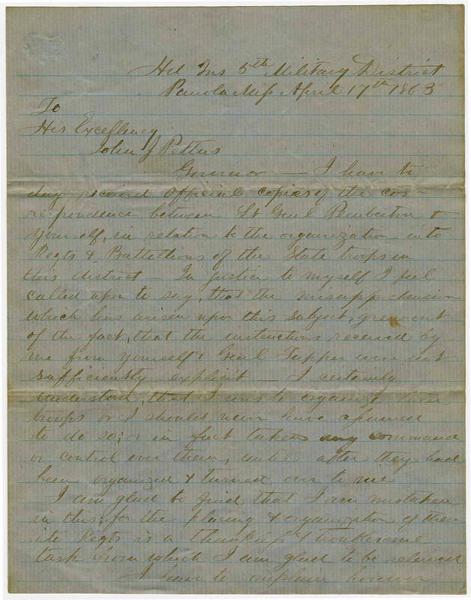 Hd Qrs 5th Military District
Panola Miss April 17th 1863
To
His Excellency
John J Pettus
Governor — I have to
day received official copies of the cor-
respondence between Lt Genl Pemberton &
yourself, in relation to the organization into
Regts & Battallions of the State troops in
this district — In justice to myself I feel
called upon to say, that the misapprehension
which has arisen upon this subject, grew out
of the fact, that the instructions received by
me from yourself & Genl Tupper were not
sufficiently explicit — I certainly
understood, that I was to organize these
troops or I should never have assumed
to do so; or in fact taken any command
or control over them, until after they had
been organized & turned over to me
I am glad to find that I am mistaken
in this for the placing & organization of these
Regts is a thankless & troublesome
task from which I am glad to be relieved
I have to however